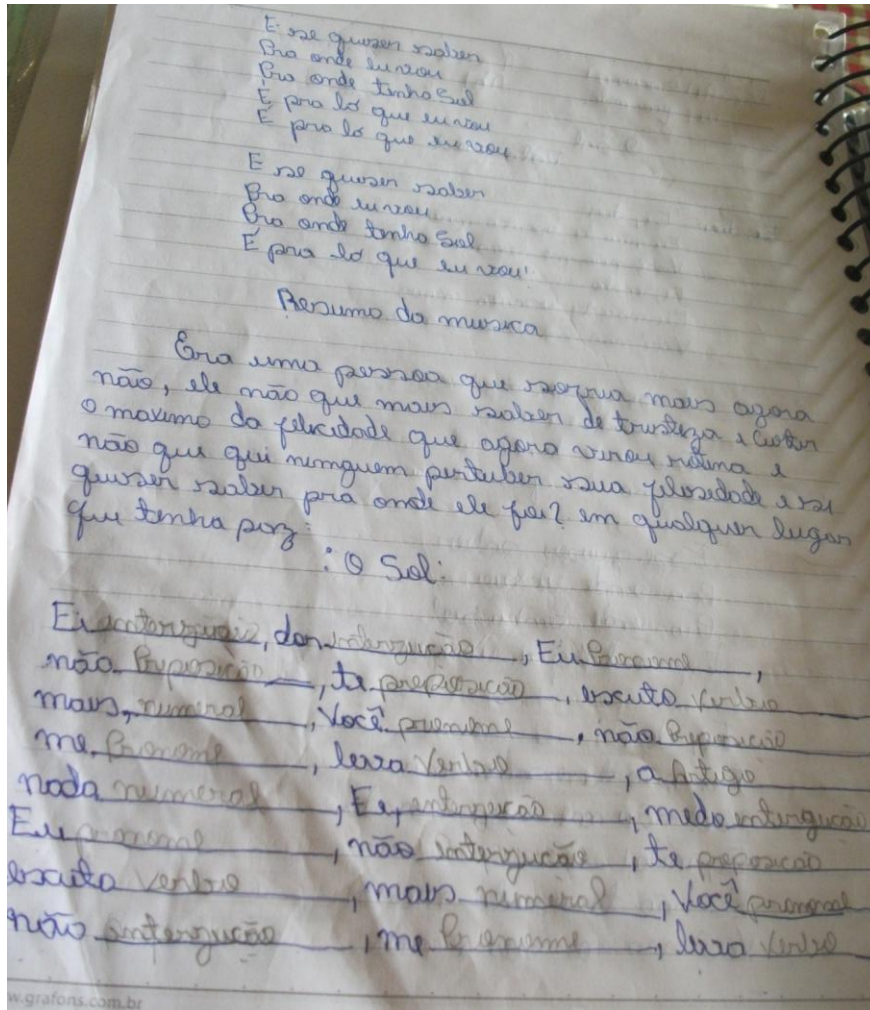 E se quiser saber
Pra onde eu vou
Pra onde tenha Sol
É pra lá que eu vou
É pra lá que eu vou
E se quiser saber
Pra onde eu vou
Pra onde tenha Sol
É pra lá que eu vou!
Resumo da musica
Era uma pessoa que sofria mais agora
não, ele não que mais saber de tristeza e
o maximo da felicidade que agora virou rotina e
não que qui ninguem pertuber sua filosidade e se
quiser saber pra onde ele foi? em qualquer lugar
que tenha paz
: O Sol:
Ei interrguçãõ, dor interrgução, Eu Pronome,
não Preposição, te preposição, escuto verbo
mais, numeral, Você pronome, não Preposição
me, Pronome, leva Verbo, a Artigo
nada numeral, Ei, interjução, medo interjução
Eu pronome, não interjução, te preposição
escuto verbo, mais numeral, Você pronome
não interjução, me Pronome, leva Verbo
w.grafons.com.br